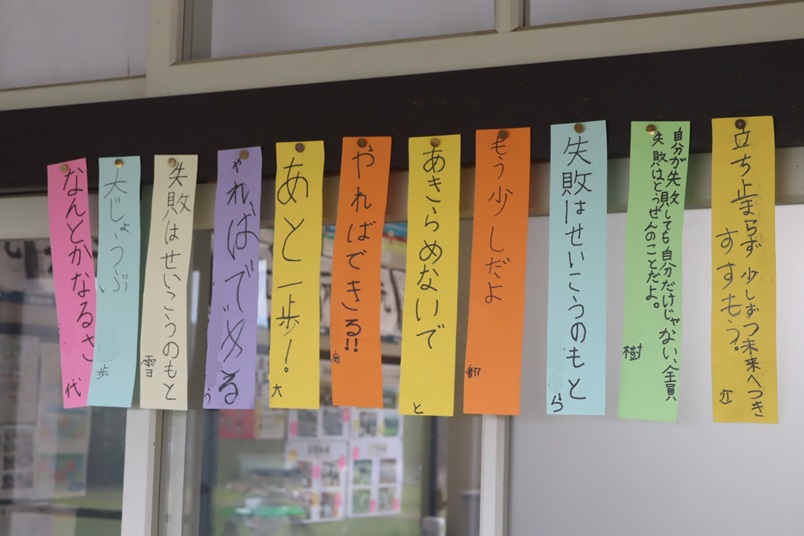 立ち止まらず少しずつ未来へつき
すすもう。
自分が失敗しても自分だけじゃない、全員
失敗はとうぜんのことだよ。
樹
失敗はせいこうのもと
ら
もう少しだよ
都
あきらめないで
と
やればできる!!
あと一歩！
大
やればできる
う
失敗はせいこうのもと
雪
大じょうぶ
歩
なんとかなるさ
代